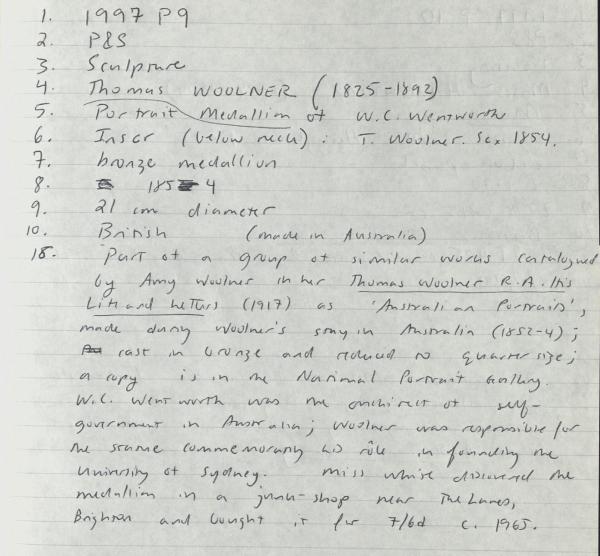 1. 1997 P9
2. P&S
3. Sculpture
4. Thomas WOOLNER (1825-1892)
5. Portrait Medallion of W.C. Wentworth
6. Inscr (below neck): T. Woolner. Sc. 1854.
7. bronze medallion
8. 1854
9. 21 cm diameter
10. British (made in Australia)
18. Part of a group of similar works catalogued
by Amy Woolner in her Thomas Woolner R.A. His
Life and Letters (1917) as 'Australian Portraits',
made during Woolner's stay in Australia (1852-4);
cast in bronze and reduced to quarter size;
a copy is in the National Portrait Gallery.
W.C. Wentworth was the architect of self-
government in Australia; Woolner was responsible for
the statue commemorating his rôle in founding the
University of Sydney. Miss White discovered the
medallion in a junk-shop near The Lanes,
Brighton and bought it for 7/6d c. 1965.